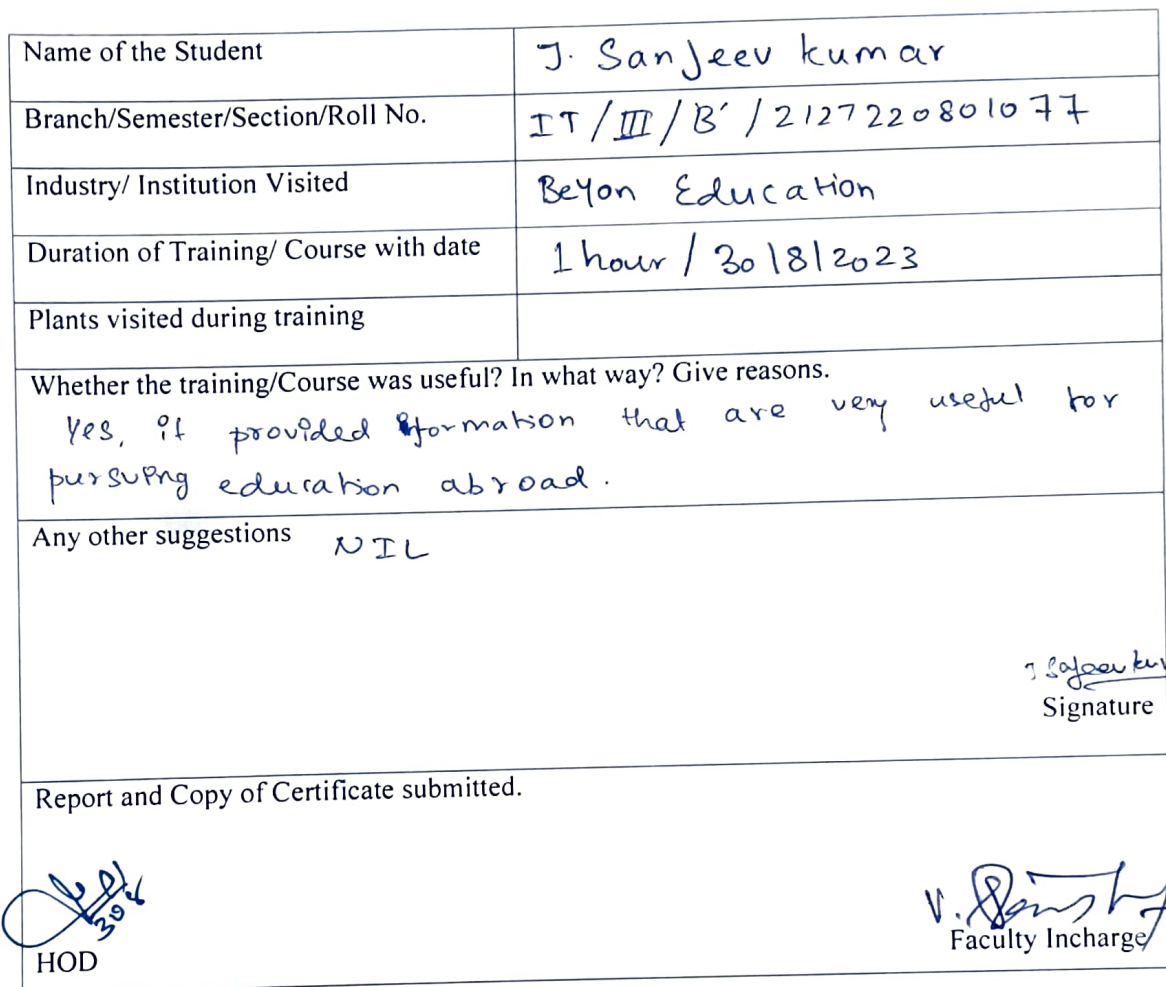 Name of the Student J. Sanjeev kumar
Branch/Semester/Section/Roll No. IT/III/B'/212722080​1077
Industry/ Institution Visited Beyon Education
Duration of Training/ Course with date 1 hour / 30/8/2023
Plants visited during training
Whether the training/Course was useful? In what way? Give reasons.
Yes, it provided information that are very useful for
pursuing education abroad.
Any other suggestions NIL
Signature
Report and Copy of Certificate submitted.
HOD
Faculty Incharge